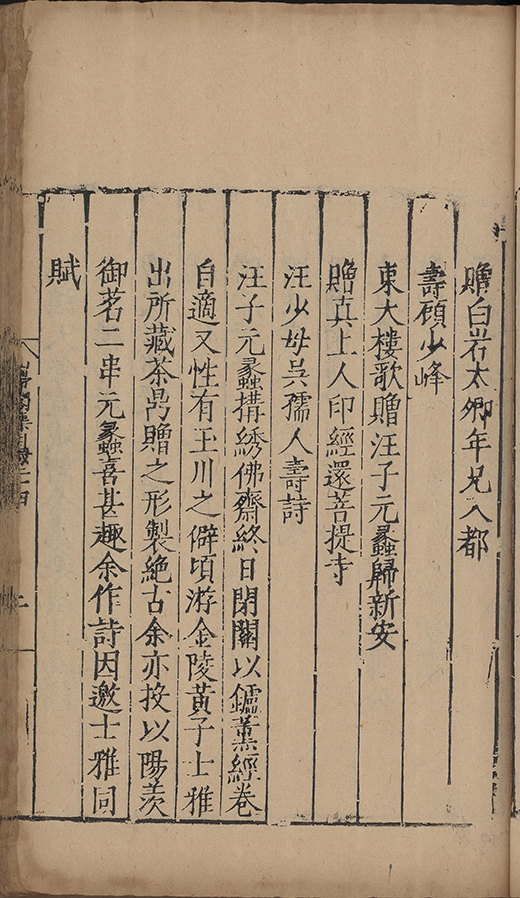 贈白岩太卿年兄入都
壽顧少峰
東大樓歌贈汪子元蠡歸新安
贈真上人印經還菩提寺
汪少母吳孺人壽詩
汪子元蠡搆綉佛齋終日閉關以鑪薰經卷
自適又性有玉川之僻頃游金陵黃子士雅
出所藏茶鬲贈之形製絶古余亦投以陽羨
御茗二串元蠡喜甚趣余作詩因邀士雅同
賦